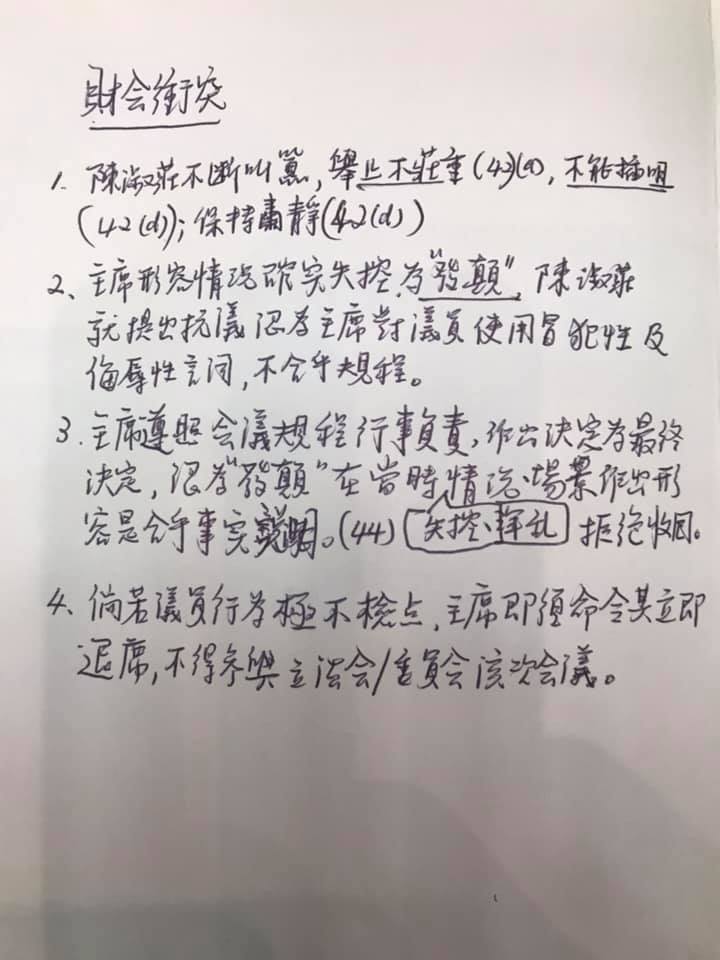 財会衝突
1. 陳淑莊不断叫囂, 舉止不莊重(42)(a), 不能插咀
(42(d)); 保持肅靜(42(d))
2、主席形容情況確实失控,為"發顛", 陳淑莊
就提出抗議認為主席對議員使用冒犯性及
侮辱性言词,不合乎規程。
3. 主席遵照会議規程行事負責,作出決定為最終
決定, 認為"發顛"在當時情況、場景作出形
容是合乎事实説明。(44) 失控、混乱 拒絶收回。
4、倘若議員行為極不檢点,主席即須命令其立即
退席,不得參與立法会/委員会該次会議。